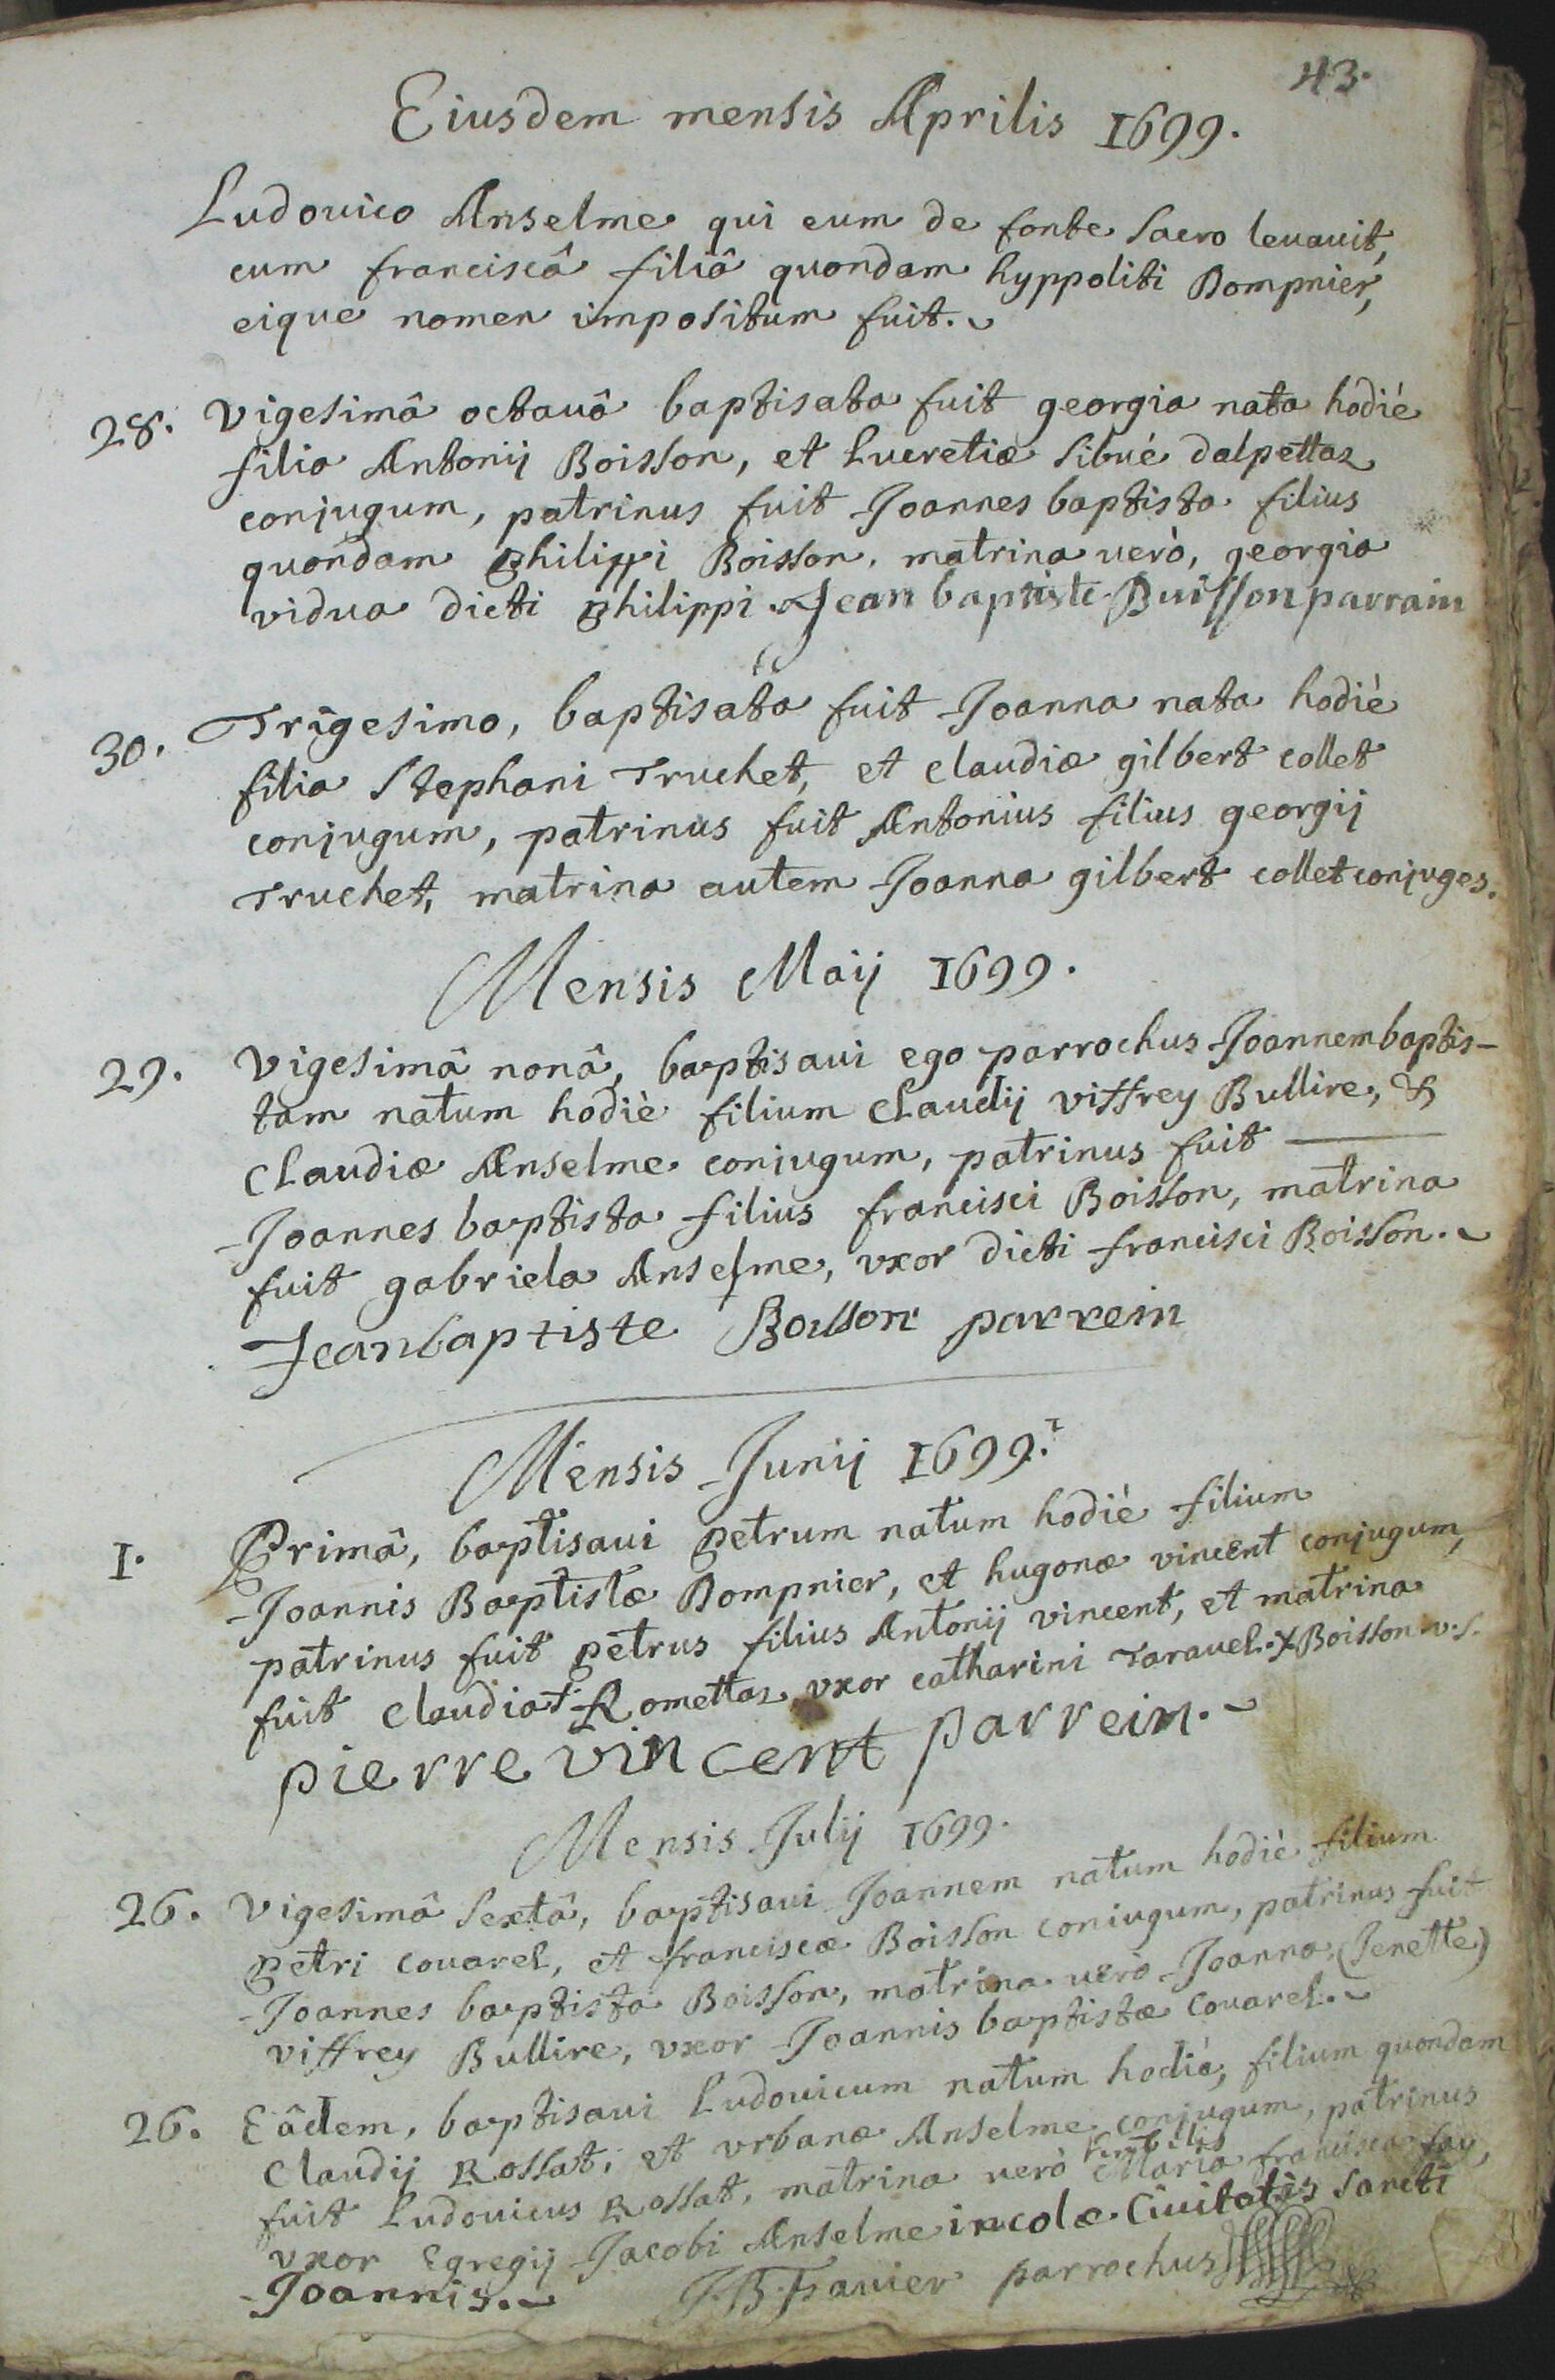 43.
Eiusdem mensis Aprilis 1699.
Ludouico Anselme qui eum de fonte sacro leuauit,
cum franciscâ filiâ quondam hyppoliti Dompnier,
eique nomen impositum fuit.
28. Vigesimâ octauâ baptisata fuit georgia nata hodiè
filia Antonij Boisson, et Lucretiæ sibué dalpettaz
conjugum, patrinus fuit Joannes baptista filius
quondam philippi Boisson, matrina uerò, georgia
vidua dicti philippi. Jean baptiste Buisson parrain
30. Trigesimo, baptisata fuit Joanna nata hodiè
filia Stephani Truchet, et claudiæ gilbert collet
conjugum, patrinus fuit Antonius filius georgij
Truchet, matrina autem Joanna gilbert collet conjuges.
Mensis Maij 1699.
29. Vigesimâ nonâ, baptisaui ego parrochus Joannem baptis-
tam natum hodiè filium Claudij viffrey Bullire, &
Claudiæ Anselme conjugum, patrinus fuit
Joannes baptista filius francisci Boisson, matrina
fuit gabriela Anselme, vxor dicti francisci Boisson.
Jeanbaptiste Boisson parrein
Mensis Junij 1699.
1. Primâ, baptisaui petrum natum hodiè filium
Joannis Baptistæ Dompnier, et hugonæ vincent conjugum,
patrinus fuit petrus filius Antonij vincent, et matrina
fuit claudia + Romettaz vxor catharini Tarauel. + Boisson v.s.
pierre vincent parrein.
Mensis Julij 1699.
26. Vigesimâ sextâ, baptisaui Joannem natum hodiè filium
petri couarel, et franciscæ Boisson coniugum, patrinus fuit
Joannes baptista Boisson, matrina uerò Joanna (Jenette)
viffrey Bullire, vxor Joannis baptistæ couarel.
26. Eâdem, baptisaui Ludouicum natum hodiè, filium quondam
Claudij Rossat, et vrbanæ Anselme conjugum, patrinus
fuit Ludouicus Rossat, matrina uerò Maria francisca fay,
vxor Egregij Jacobi Anselme incolæ Ciuitatis sancti
Joannis. J.B. Fauier parrochus